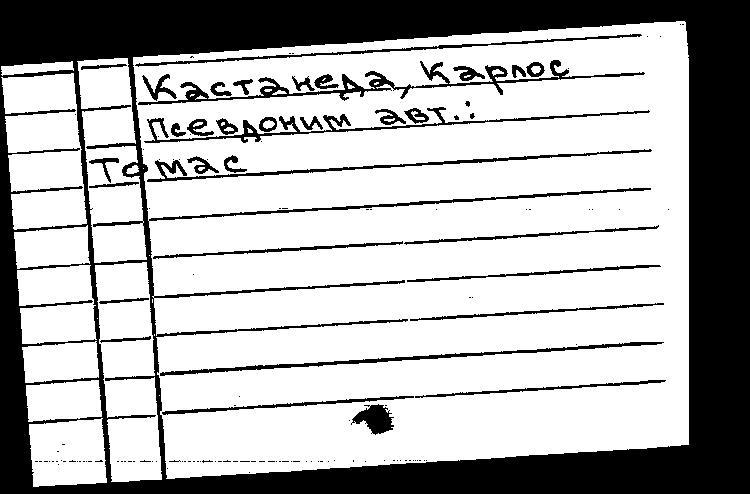 Кастанеда, Карлос
псевдоним авт.:
Томас